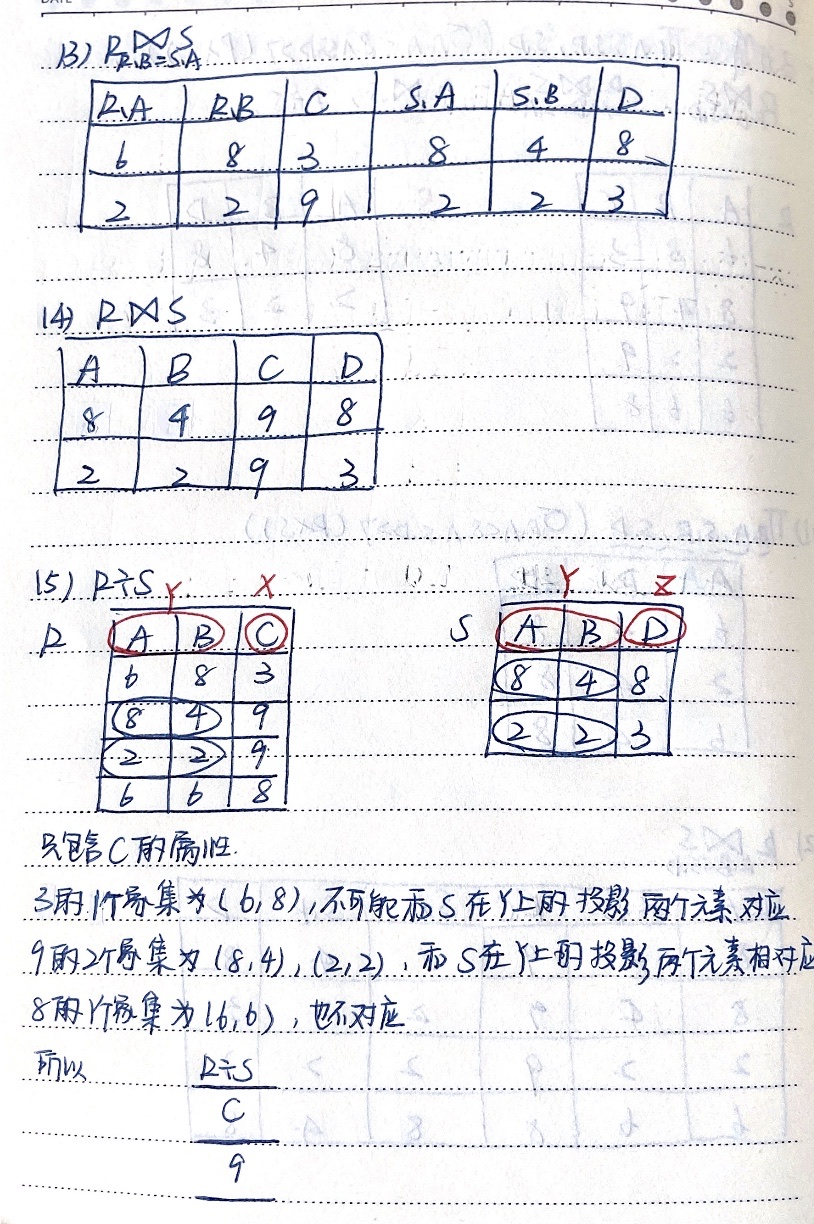 DATE
13) R⋈S
R.B=S.A
R.A R.B C S.A S.B D
6 8 3 8 4 8
2 2 9 2 2 3
14) R⋈S
A B C D
8 4 9 8
2 2 9 3
15) R÷S
Y X
R A B C
6 8 3
8 4 9
2 2 9
6 6 8
Y Z
S A B D
8 4 8
2 2 3
只包含C的属性.
3的1个象集为(6,8),不可能和S在Y上的投影两个元素对应
9的2个象集为(8,4),(2,2),和S在Y上的投影两个元素相对应
8的1个象集为(6,6),也不对应
所以 R÷S
C
9